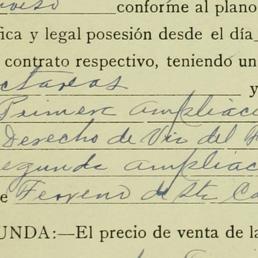 conforme al plano
fica y legal posesión desde el día
contrato respectivo, teniendo un
ctareas y
Primera ampliac
Derecho de Via del
egunda ampliac
e Terreno de Sta Ca
UNDA:—El precio de venta de la